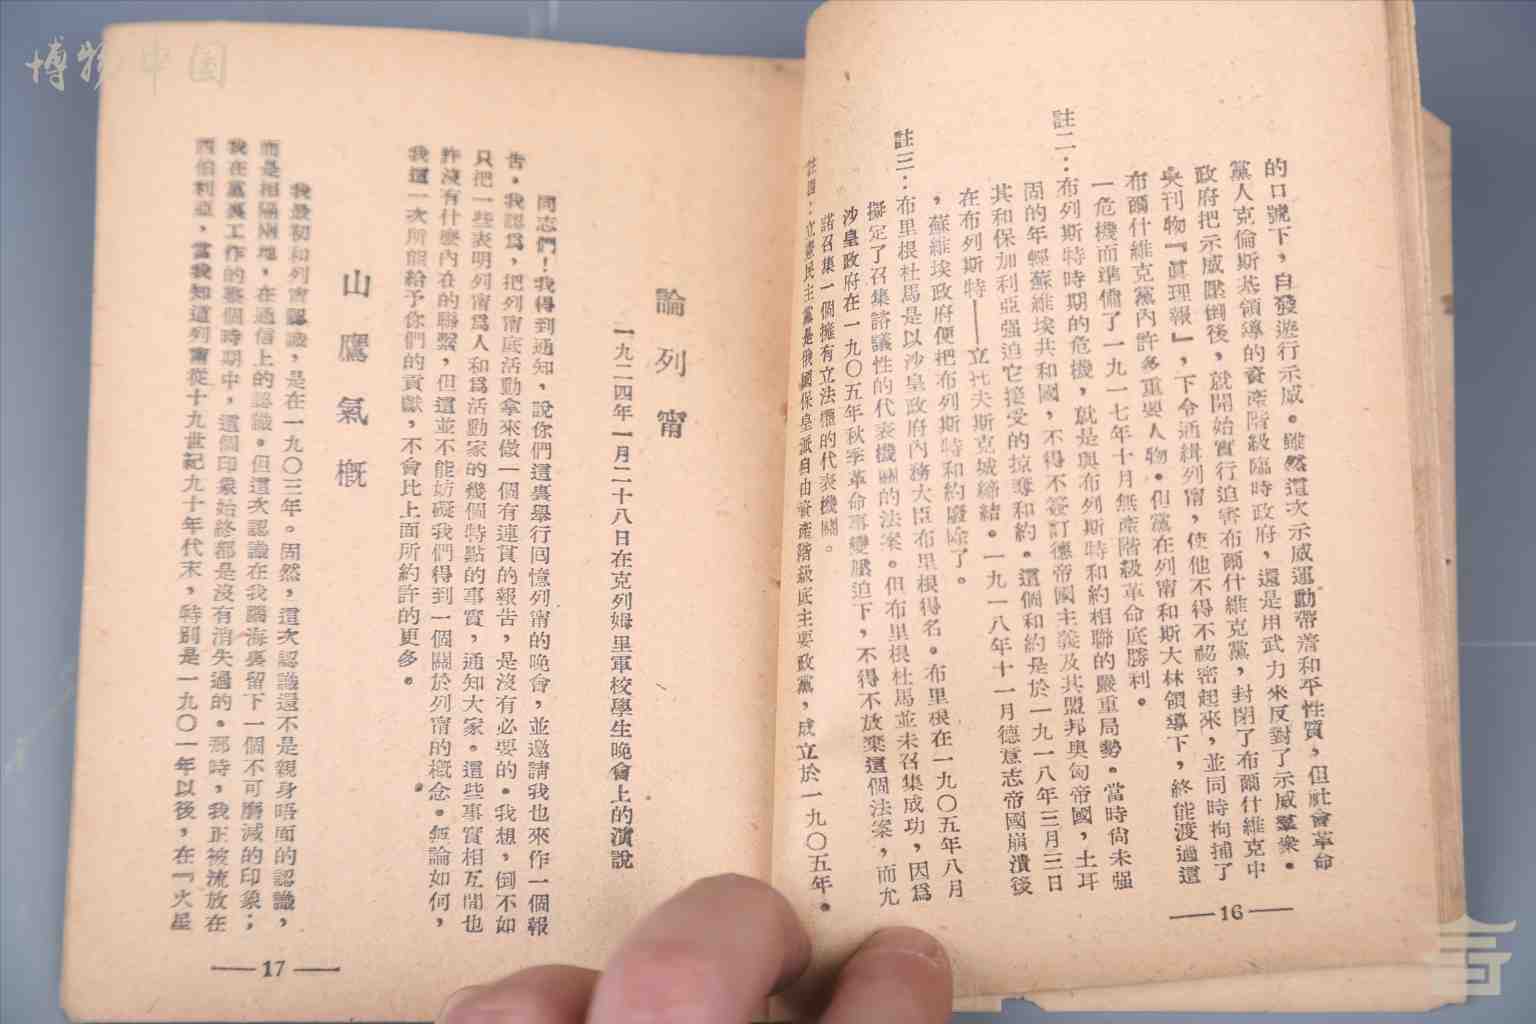 博物中国
的口號下，自發遊行示威。雖然這次示威運動帶着和平性質，但社會革命
黨人克倫斯基領導的資產階級臨時政府，還是用武力來反對了示威羣衆。
政府把示威壓倒後，就開始實行迫害布爾什維克黨，封閉了布爾什維克中
央刊物『眞理報』，下令通緝列甯，使他不得不祕密起來，並同時拘捕了
布爾什維克黨內許多重要人物。但黨在列甯和斯大林領導下，終能渡過這
一危機而準備了一九一七年十月無產階級革命底勝利。
註二：布列斯特時期的危機，就是與布列斯時和約相聯的嚴重局勢。當時尚未强
固的年輕蘇維埃共和國，不得不簽訂德帝國主義及其盟邦奧匈帝國，土耳
其和保加利亞强迫它接受的掠奪和約。這個和約是於一九一八年三月三日
在布列斯特——立托夫斯克城締結。一九一八年十一月德意志帝國崩潰後
，蘇維埃政府便把布列斯特和約廢除了。
註三：布里根杜馬是以沙皇政府內務大臣布里根得名。布里根在一九〇五年八月
擬定了召集諮議性的代表機關的法案。但布里根杜馬並未召集成功，因爲
沙皇政府在一九〇五年秋季革命事變壓迫下，不得不放棄這個法案，而允
諾召集一個擁有立法權的代表機關。
註四：立憲民主黨是俄國保皇派自由資產階級底主要政黨，成立於一九〇五年。
—— 16 ——
論列甯
一九二四年一月二十八日在克列姆里軍校學生晚會上的演說
同志們！我得到通知，說你們這裏舉行回憶列甯的晚會，並邀請我也來作一個報
告。我認爲，把列甯底活動拿來做一個有連貫的報告，是沒有必要的。我想，倒不如
只把一些表明列甯爲人和爲活動家的幾個特點的事實，通知大家。這些事實相互間也
許沒有什麼內在的聯繫，但這並不能妨礙我們得到一個關於列甯的概念。無論如何，
我這一次所能給予你們的貢獻，不會比上面所約許的更多。
山鷹氣概
我最初和列甯認識，是在一九〇三年。固然，這次認識還不是親身晤面的認識，
而是相隔兩地，在通信上的認識。但這次認識在我腦海裏留下一個不可磨滅的印象；
我在黨裏工作的整個時期中，這個印象始終都是沒有消失過的。那時，我正被流放在
西伯利亞，當我知道列甯從十九世紀九十年代末，特別是一九〇一年以後，在『火星
—— 17 ——